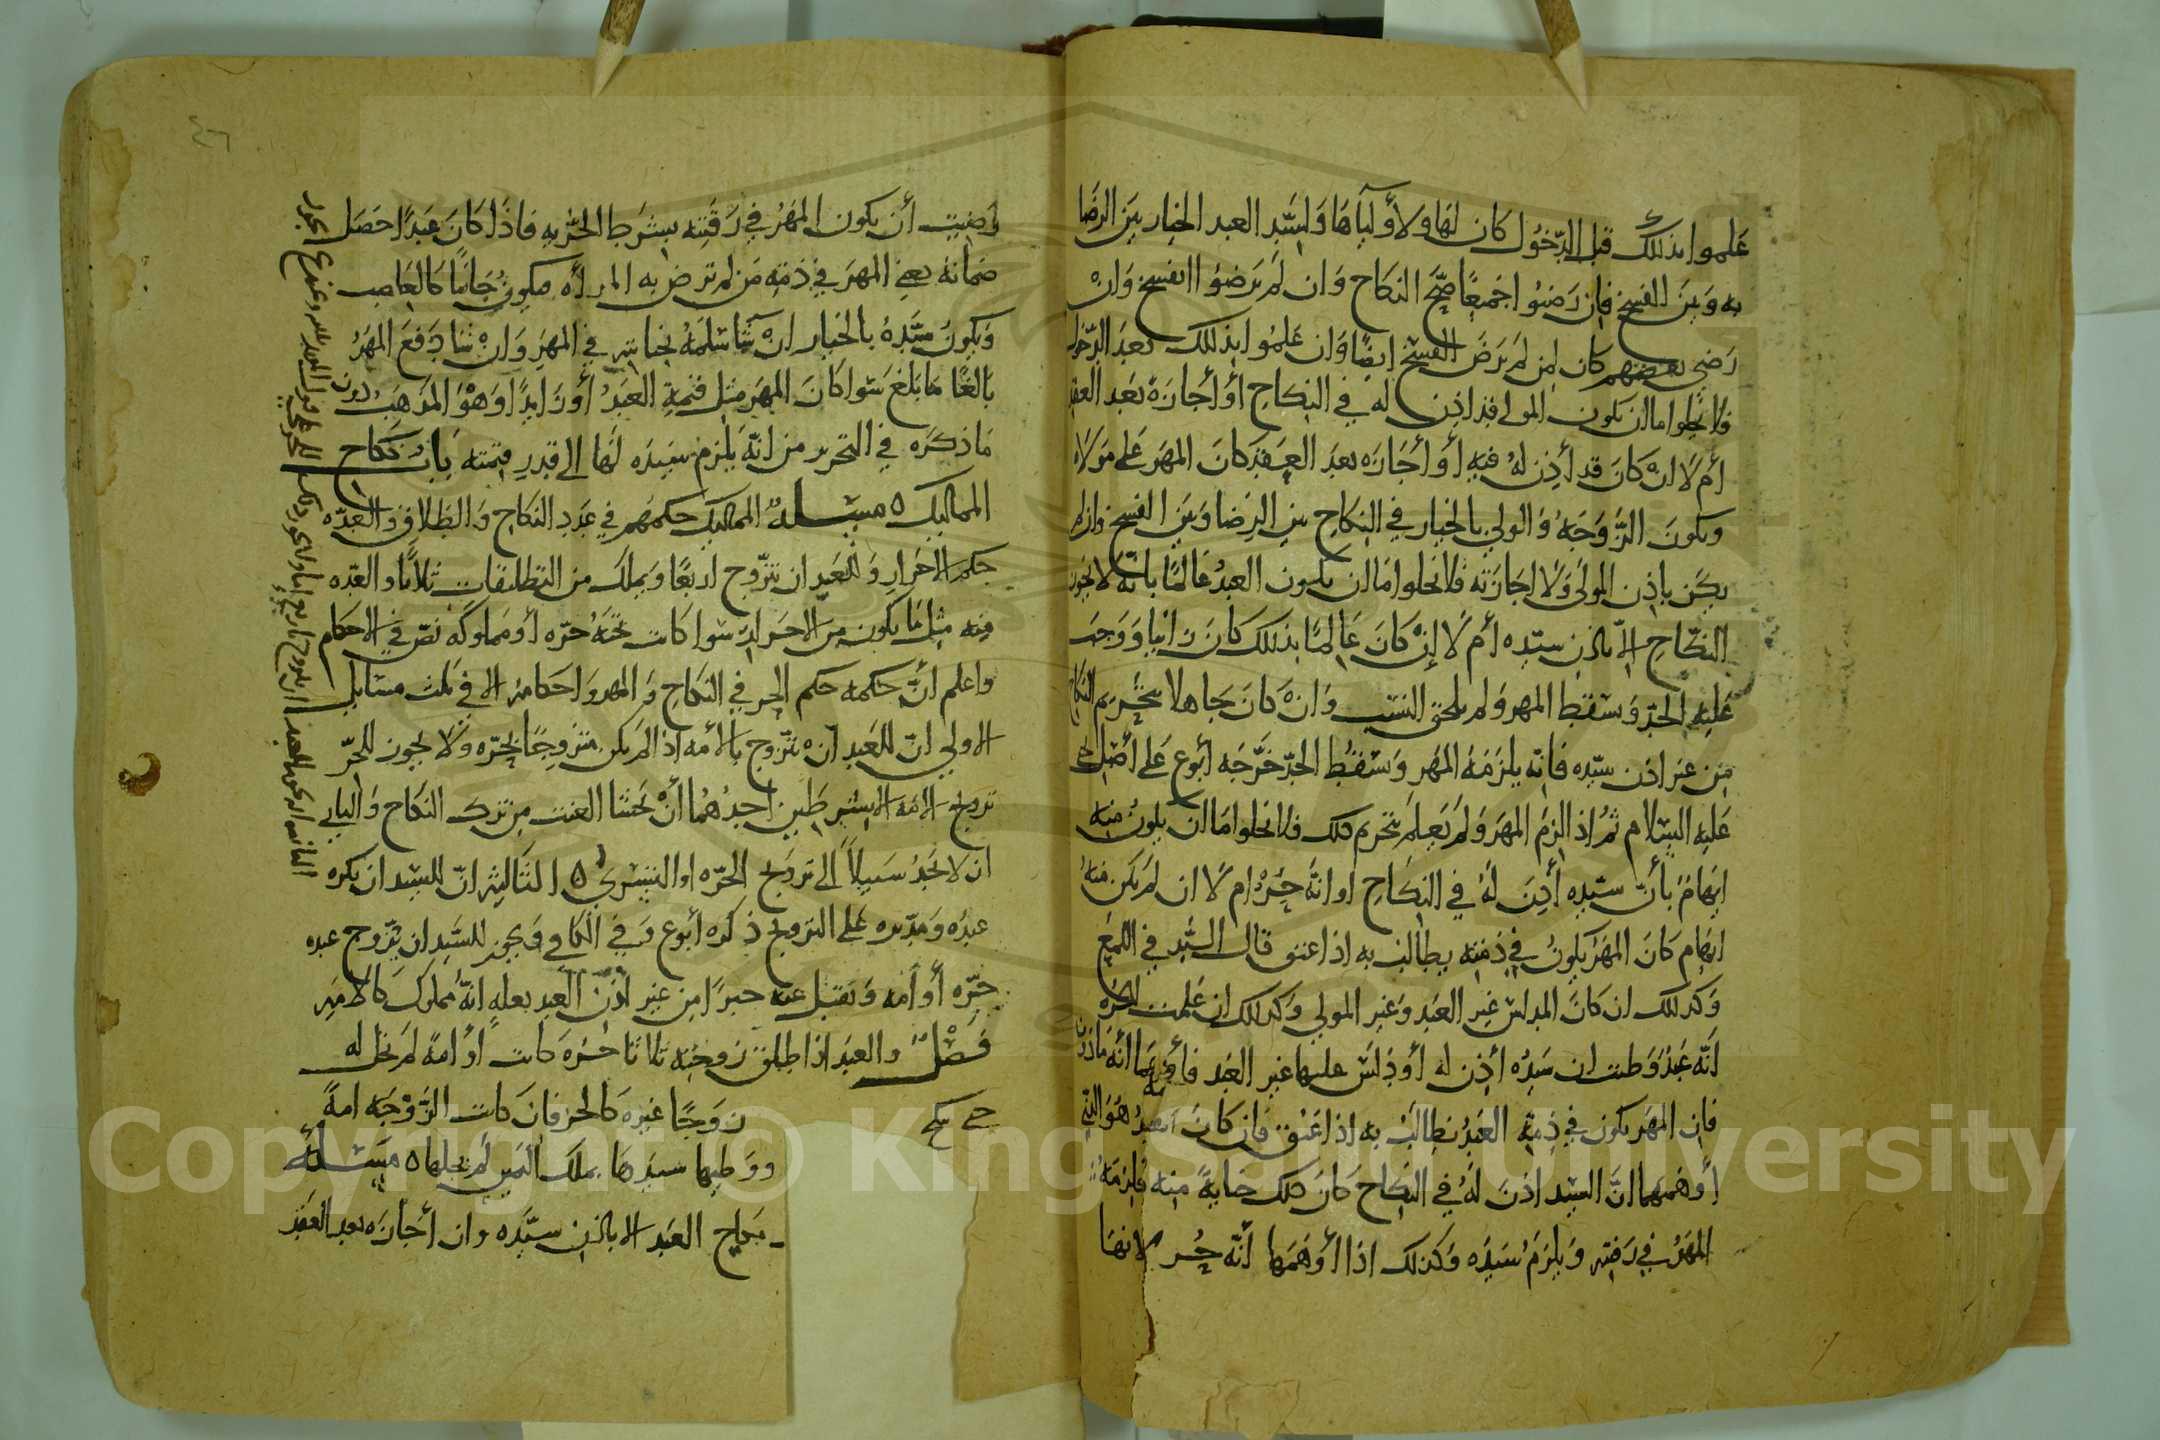 علموا بذلك قبل الدخول كان لها ولأوليآها ولسيد العبد الخيار بين الرضا
به وبين الفسخ فان رضوا جميعًا صح النكاح وان لم يرضوا انفسخ وان
رضى بعضهم كان لمن لم يرض الفسخ ايضًا وان علموا بذلك بعد الدخول
فلا يخلوا اما ان يكون المولى قد اذن له في النكاح أو أجازه بعد العقد
أم لا ان كان قد أذن له فيه أو أجازه بعد العقد كان المهر على مولاه
ويكون الزوجه والولي بالخيار في النكاح بين الرضا وبين الفسخ وان لم
يكن باذن المولى ولا اجازته فلا يخلوا اما ان يكون العبد عالمًا بانه لا يجوز
النكاح الا باذن سيده أم لا إن كان عالمًا بذلك كان زانيا ووجب
عليه الحد وسقط المهر ولم يلحق النسب وان كان جاهلا بتحريم النكاح
من غير اذن سيده فانه يلزمه المهر وسقط الحد خرجه أبو ع على أصل ى
عليه السلام ثم اذا لزم المهر ولم يعلم بتحريم ذلك فلا يخلوا اما ان يكون منه
ايهام بأن سيده أذن له في النكاح او انه حر ام لا ان لم يكن منه
ايهام كان المهر يكون في ذمته يطالب به اذا عتق قال السيد في اللمع
وكذلك ان كان المدلس غير العبد وغير المولى وكذلك ان علمت الحره
أنه عبد وظنت ان سيده أذن له أو دلس عليها غير العبد فأوهمها انه ماذون
فان المهر يكون في ذمة العبد يطالب به اذا عتق فان كان العبد هو الذي
أوهمها ان السيد اذن له في النكاح كان ذلك جناية منه فلزمه
المهر في رقبته ويلزم سيده وكذلك اذا أوهمها أنه حر لانها
٤٦
رضيت أن يكون المهر في رقبته بشرط الحريه فاذا كان عبدًا حصل
ضمانه يعني المهر في ذمته من لم ترض به المرأه فيكون جانيًا كالغاصب
ويكون سيده بالخيار ان شا سلمه بجنايته في المهر وان شا دفع المهر
بالغًا ما بلغ سوا كان المهر مثل قيمة العبد أو زايدًا وهو المذهب دون
ما ذكره في التحرير من انه يلزم سيده لها الى قدر قيمته باب نكاح
المماليك ه مسئلة المماليك حكمهم في عدد النكاح والطلاق والعده
حكم الاحرار وللعبد ان يتزوج اربعًا ويملك من التطليقات ثلاثًا والعده
منه مثل ما يكون من الاحرار سوا كانت تحته حره أو مملوكه نص في الاحكام
واعلم أن حكمه حكم الحر في النكاح والمهر واحكامه الا في ثلث مسايل
الاولى ان للعبد ان يتزوج بالأمه اذا لم يكن متزوجًا بحره ولا يجوز للحر
تزويج الامه الا بشرطين احدهما أن يخشا العنت من ترك النكاح والثاني
ان لا يجد سبيلاً الى تزويج الحره او التسري ه الثالثه ان للسيد ان يكره
عبده ومدبره على التزويج ذكره أبو ع وفي الكافي ويجوز للسيد ان يزوج عبده
حره أو أمه ويقبل عنه جبرًا من غير اذن العبد بعله انه مملوك كالأمه
فصل والعبد اذا طلق زوجته ثلاثا حره كانت أو أمة لم تحل له
زوجًا غيره كالحر فان كانت الزوجه امة
ووطيها سيدها بملك اليمين لم يحلها ه مسئلة
نكاح العبد الا باذن سيده وان أجازه بعد العقد